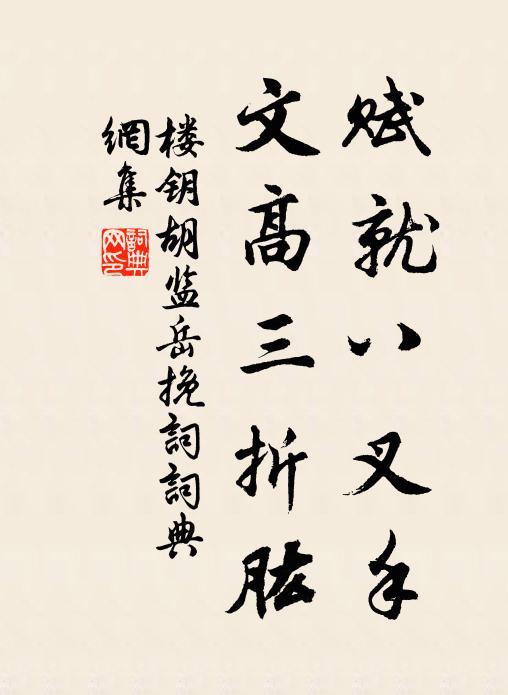 赋就八叉手
文高三折肱
楼钥胡监岳挽詞詞典
網集
詞典
网印